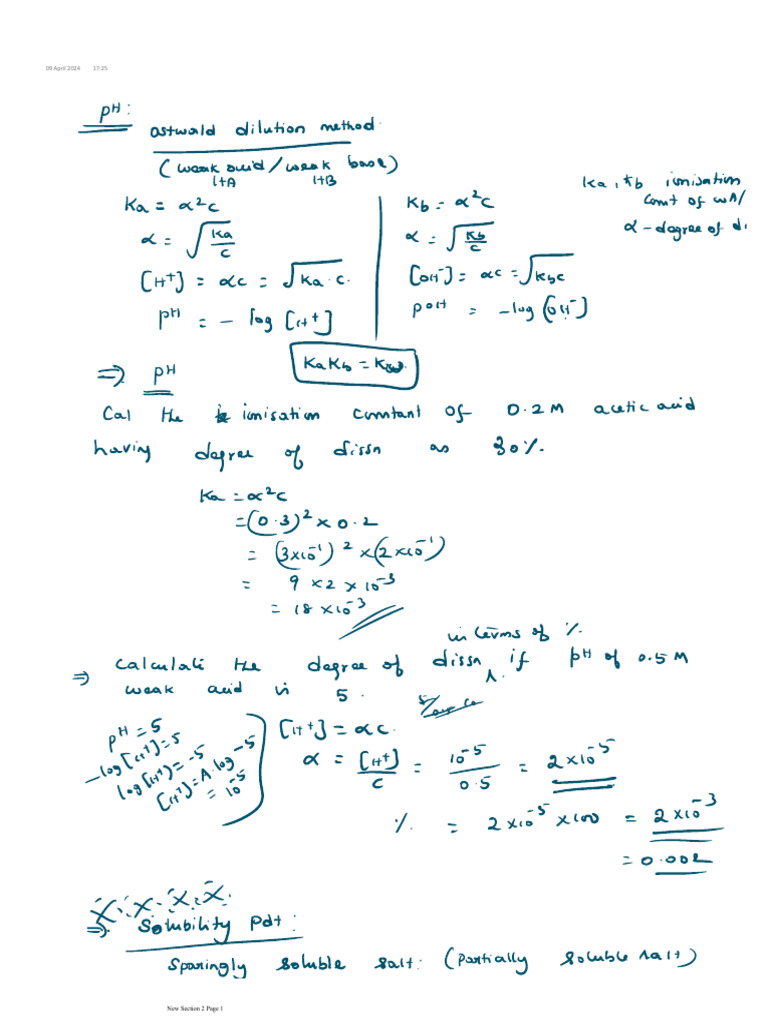 09 April 2024 17:25
pH:
ostwald dilution method
(weak acid/weak base)
1+A 1+B
Ka, kb ionisation
const of WA/
α - degree of di
Ka = α²c
α = √(Ka/c)
[H⁺] = αc = √Ka·c.
pH = - log [H⁺]
Kb = α²c
α = √(Kb/c)
[OH⁻] = αc = √Kbc
pOH = -log[OH⁻]
KaKb = Kw.
⇒ pH
Cal the ionisation constant of 0.2M acetic acid
having degree of dissn as 30%.
Ka = α²c
= (0.3)² × 0.2
= (3×10⁻¹)² × (2×10⁻¹)
= 9 × 2 × 10⁻³
= 18 × 10⁻³
in terms of %
⇒ Calculate the degree of dissn ∧ if pH of 0.5M
weak acid is 5.
pH = 5
-log[H⁺] = 5
log[H⁺] = -5
[H⁺] = A·log -5
= 10⁻⁵
[H⁺] = αc.
α = [H⁺]/c = 10⁻⁵/0.5 = 2×10⁻⁵
% = 2×10⁻⁵ × 100 = 2×10⁻³
= 0.002
X. X. X. X.
⇒ Solubility Pdt:
Sparingly soluble salt: (Partially soluble salt)
New Section 2 Page 1